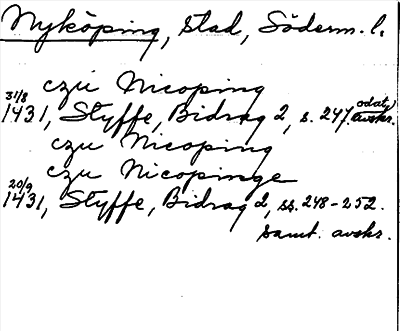 Nyköping, stad, Söderm. l.
czü Nicoping
31/8 1431, Styffe, Bidrag 2, s. 247. odat. avskr.
czü Nicoping
czü Nicopinge
20/9 1431, Styffe, Bidrag 2, ss. 248-252.
samt. avskr.